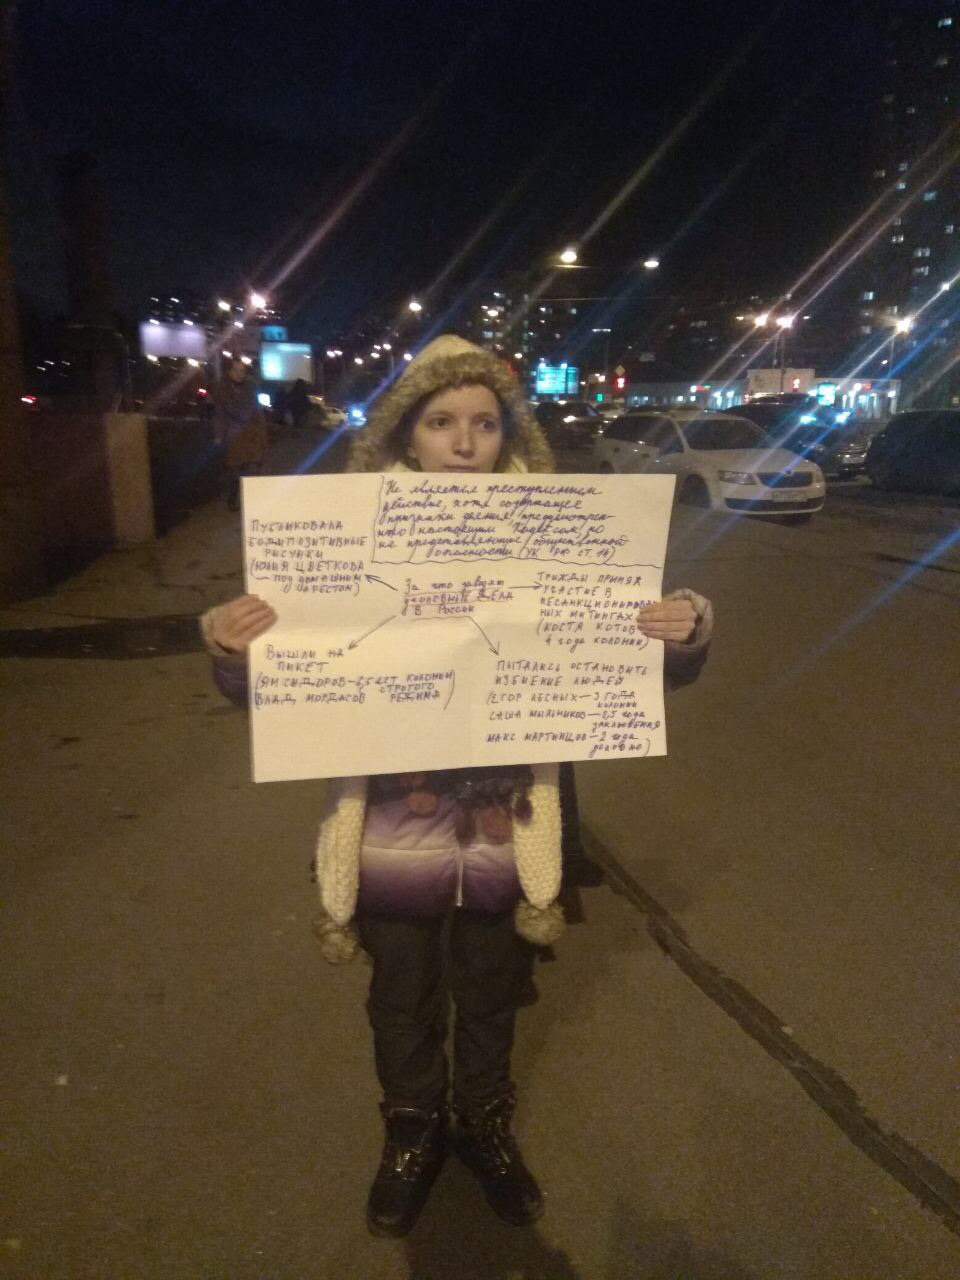 Не является преступлением
действие, хотя содержащее
признаки деяния, предусмотрен-
ного настоящим Кодексом, но
не представляющее общественной
опасности (УК РФ ст. 14)
ПУБЛИКОВАЛА
БОДИПОЗИТИВНЫЕ
РИСУНКИ
(ЮЛИЯ ЦВЕТКОВА
— ПОД ДОМАШНИМ
АРЕСТОМ)
За что заводят
уголовные дела
в России
ТРИЖДЫ ПРИНЯЛ
УЧАСТИЕ В
НЕСАНКЦИОНИРОВАН
НЫХ МИТИНГАХ
(КОСТЯ КОТОВ
4 года КОЛОНИИ)
ВЫШЛИ НА
ПИКЕТ
(ЯН СИДОРОВ — 6,5 ЛЕТ КОЛОНИИ
СТРОГОГО
ВЛАД МОРДАСОВ РЕЖИМА)
ПЫТАЛИСЬ ОСТАНОВИТЬ
ИЗБИЕНИЕ ЛЮДЕЙ
(ЕГОР ЛЕСНЫХ — 3 ГОДА
КОЛОНИИ
САША МЫЛЬНИКОВ — 2,5 года
заключения
МАКС МАРТИНЦОВ — 2 года
условно)